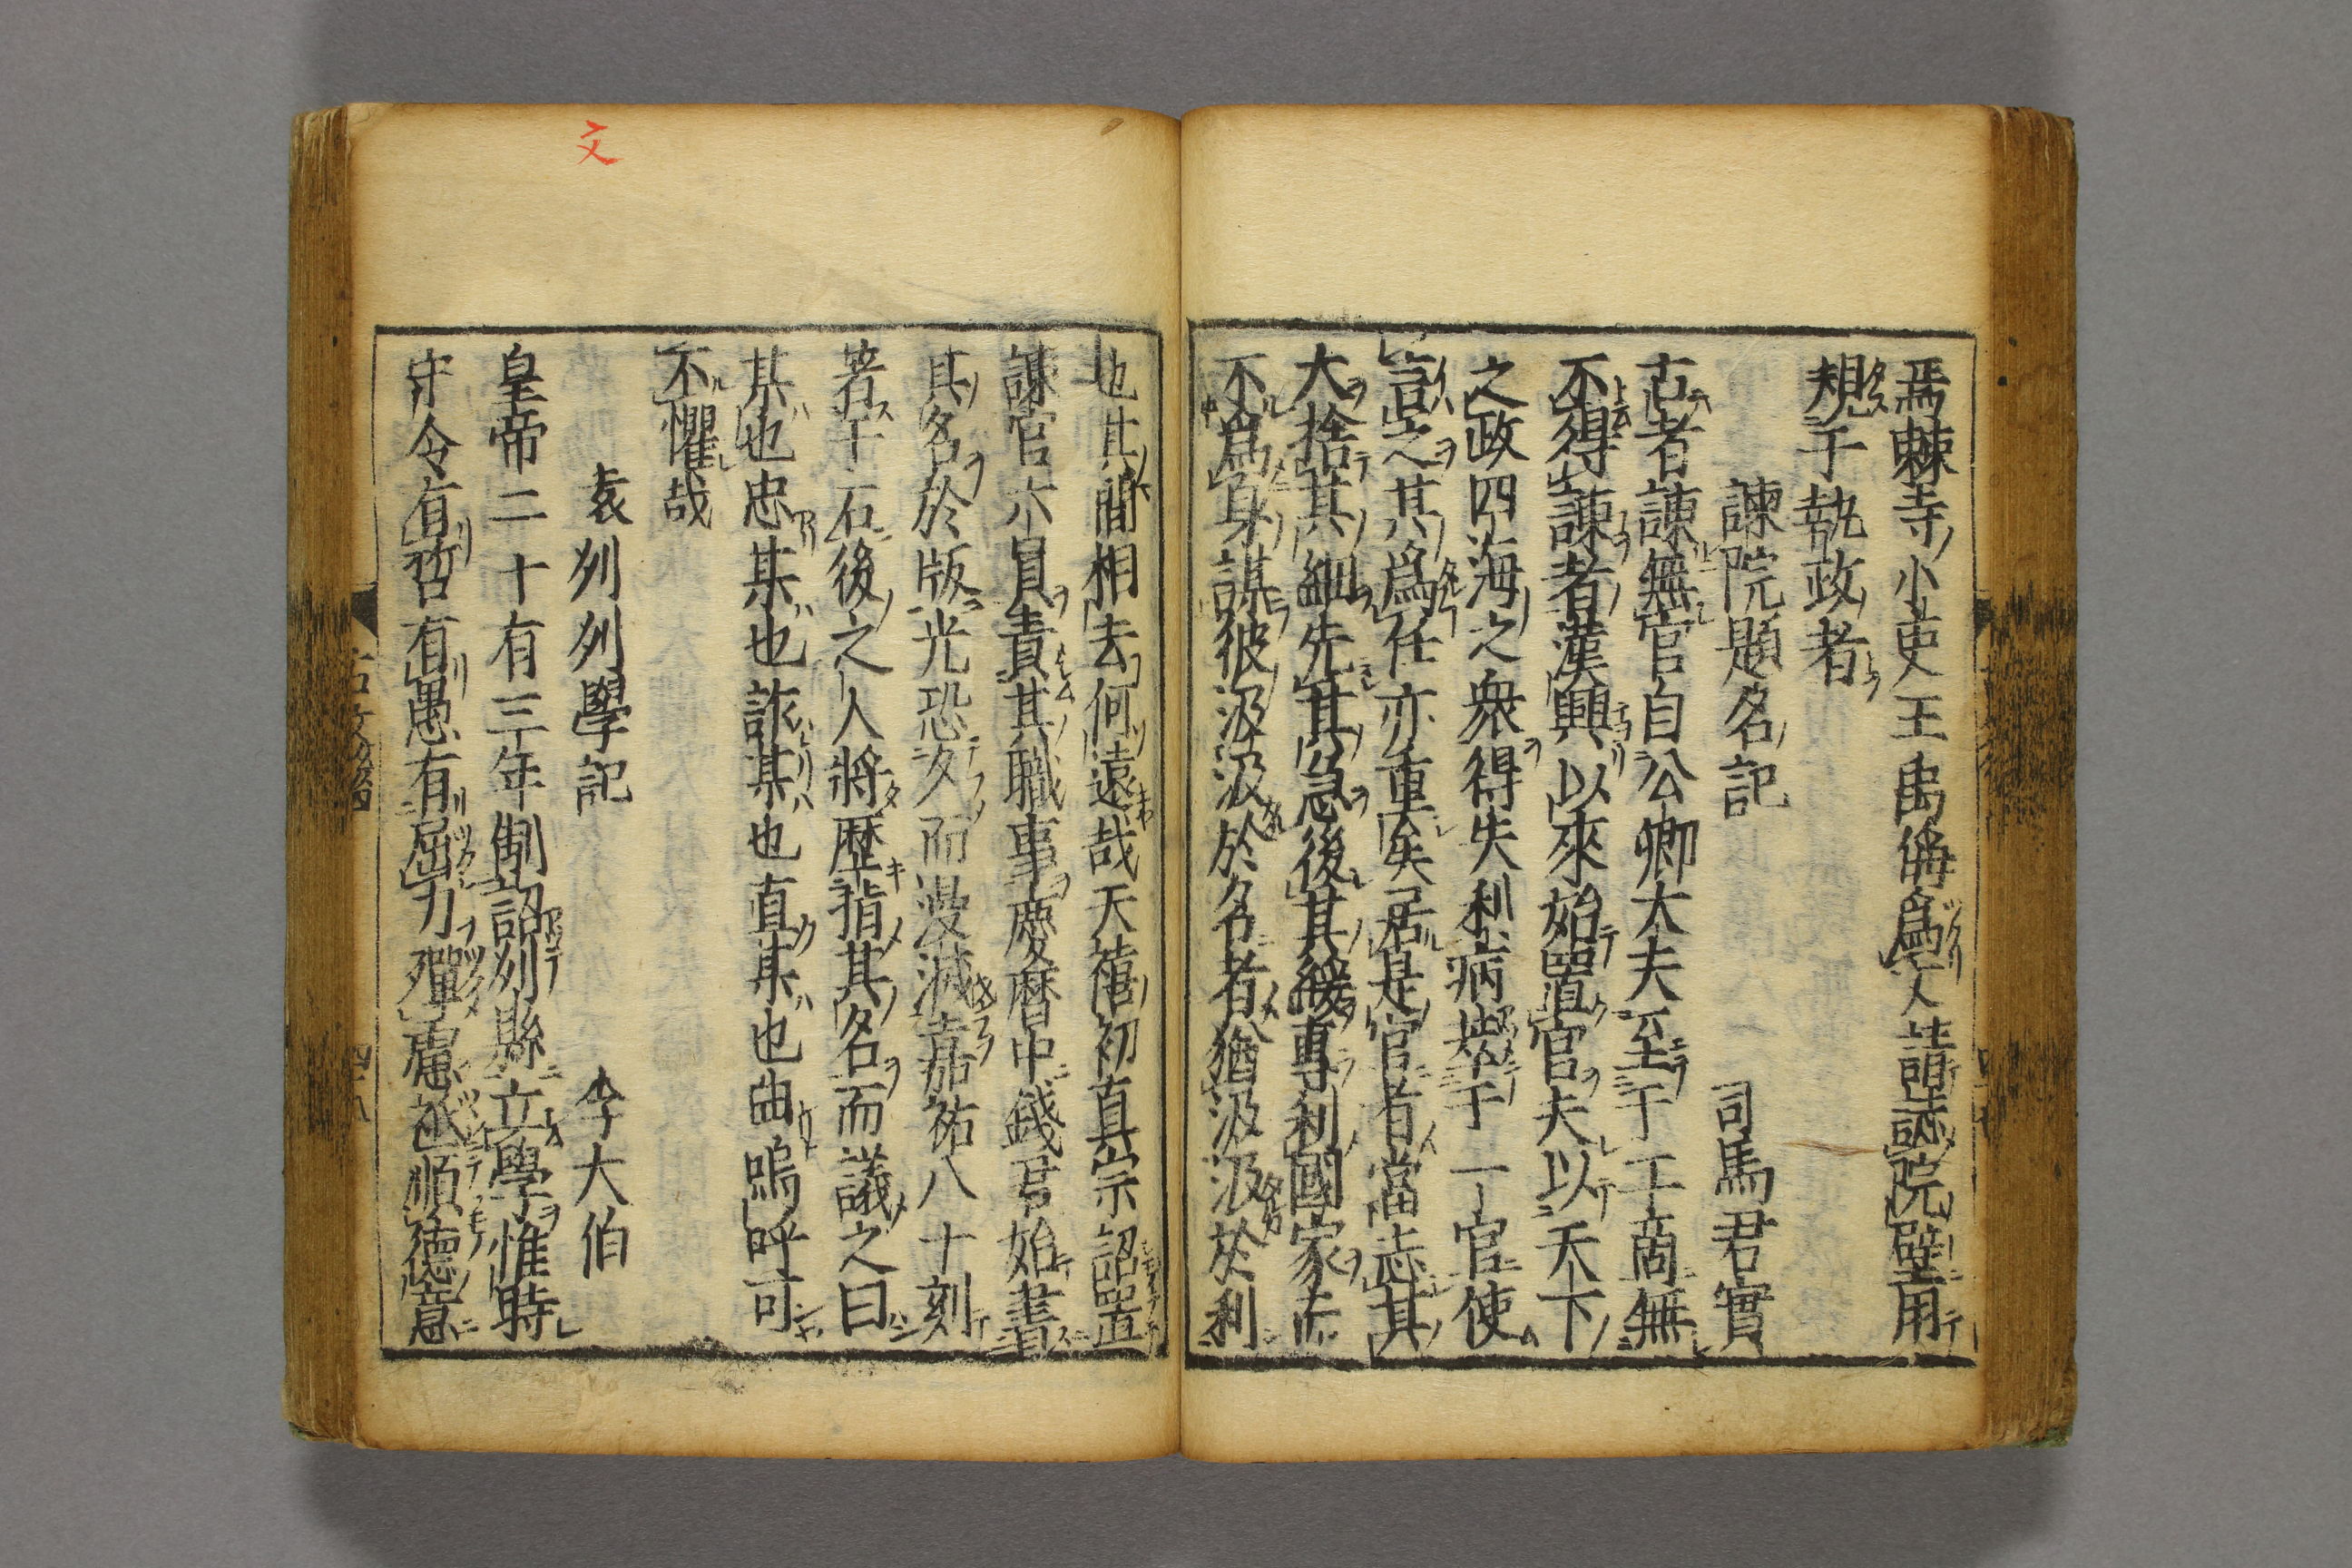 焉棘寺小吏王禹偁爲文請誌院壁用
規于執政者
諫院題名記　司馬君實
古者諫無官自公卿大夫至于工商無
不得諫者漢興以來始置官夫以天下
之政四海之衆得失利病萃于一官使
言之其爲任亦重矣居是官者當志其
大捨其細先其急後其緩專利國家而
不爲身謀彼汲汲於名者猶汲汲於利
也其間相去何遠哉天禧初真宗詔置
諫官六員責其職事慶曆中錢君始書
其名於版光恐久而漫滅嘉祐八年刻
著于石後之人將歷指其名而議之曰
某也忠某也詐某也直某也曲嗚呼可
不懼哉
袁州州學記　李大伯
皇帝二十有三年制詔州縣立學惟時
守令有哲有愚有屈力殫慮祗順德意
文